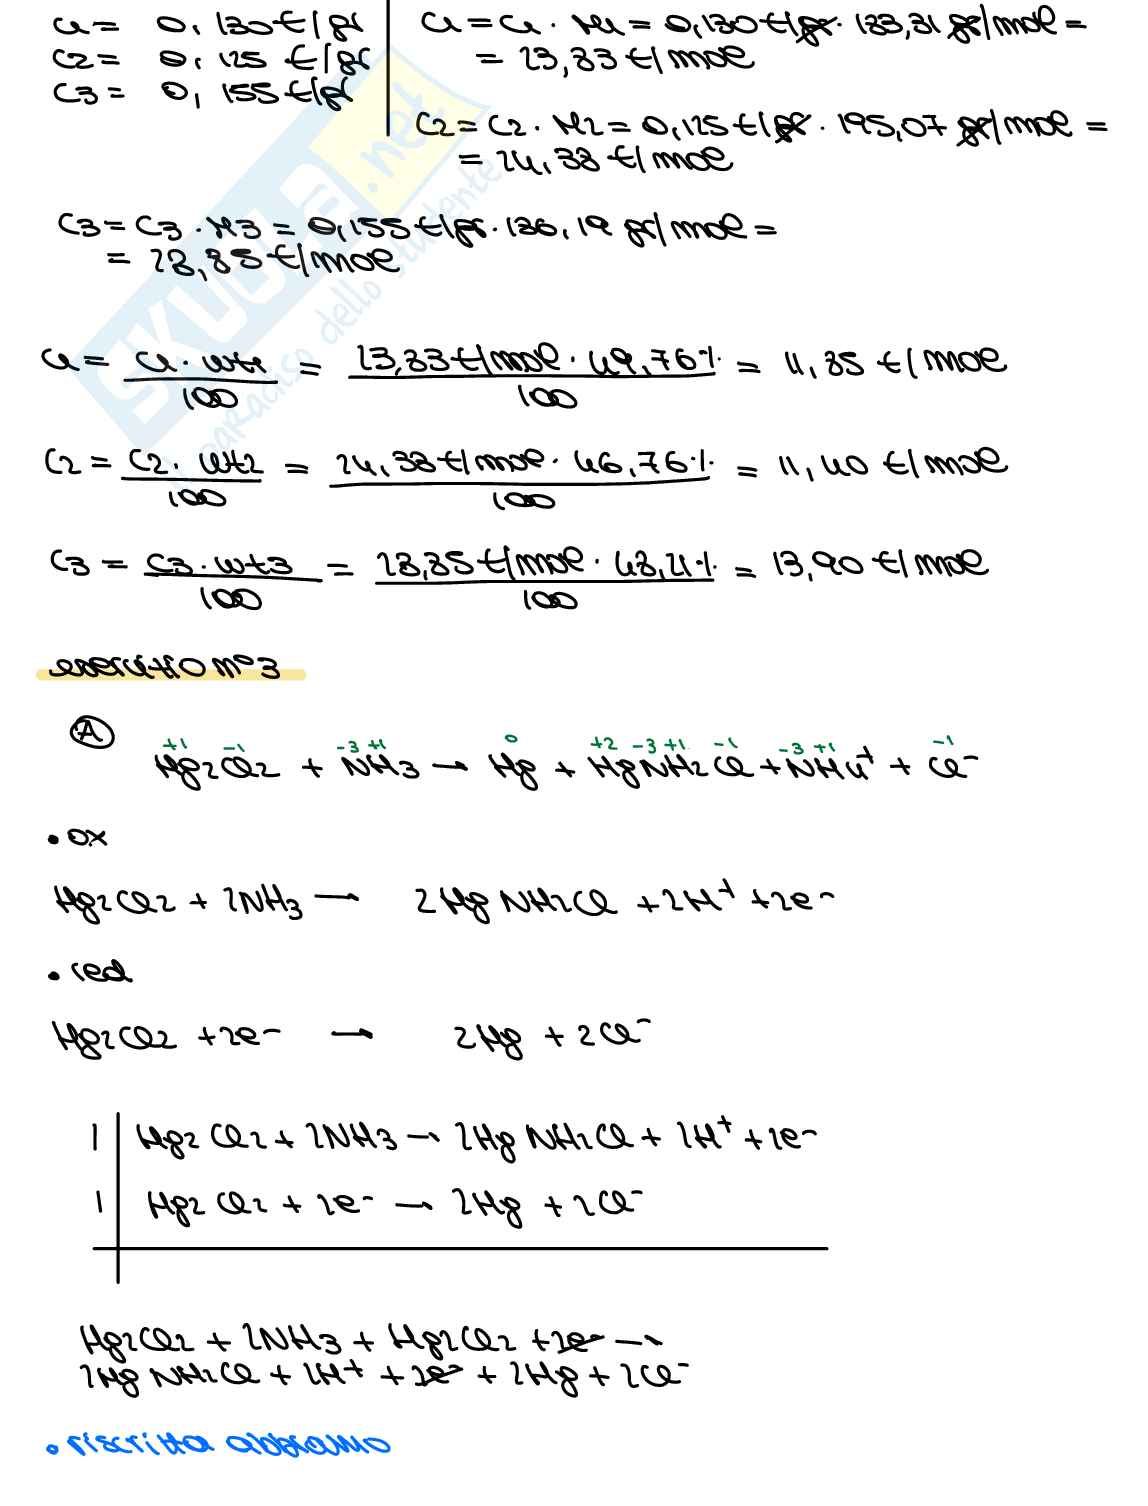 C1 = 0,130 €/gr
C1 = C1 · M1 = 0,130 €/gr · 183,31 gr/mole =
= 23,83 €/mole
C2 = 0,125 €/gr
C3 = 0,155 €/gr
C2 = C2 · M2 = 0,125 €/gr · 195,07 gr/mole =
= 24,38 €/mole
C3 = C3 · M3 = 0,155 €/gr · 186,19 gr/mole =
= 28,85 €/mole
SKUOLA.net
il paradiso dello studente
C1 = C1 · wt1 / 100 = 23,83 €/mole · 49,76% / 100 = 11,85 €/mole
C2 = C2 · wt2 / 100 = 24,38 €/mole · 46,76% / 100 = 11,40 €/mole
C3 = C3 · wt3 / 100 = 28,85 €/mole · 48,21% / 100 = 13,90 €/mole
esercizio n°3
A
+1 -1 -3 +1 0 +2 -3 +1 -1 -3 +1 -1
Hg2Cl2 + NH3 → Hg + HgNH2Cl + NH4⁺ + Cl⁻
• ox
Hg2Cl2 + 2NH3 → 2HgNH2Cl + 2H⁺ + 2e⁻
• red
Hg2Cl2 + 2e⁻ → 2Hg + 2Cl⁻
1 | Hg2Cl2 + 2NH3 → 2HgNH2Cl + 2H⁺ + 2e⁻
1 | Hg2Cl2 + 2e⁻ → 2Hg + 2Cl⁻
Hg2Cl2 + 2NH3 + Hg2Cl2 + 2e⁻ →
2HgNH2Cl + 2H⁺ + 2e⁻ + 2Hg + 2Cl⁻
• riscritta abbiamo